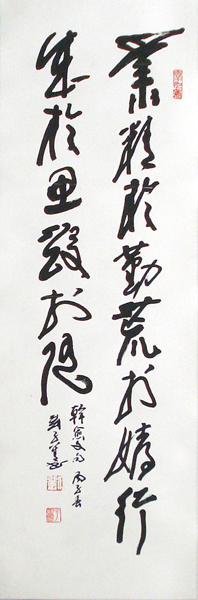 業精於勤荒於嬉行
成於思毀於隨
韓愈文句 丙子春